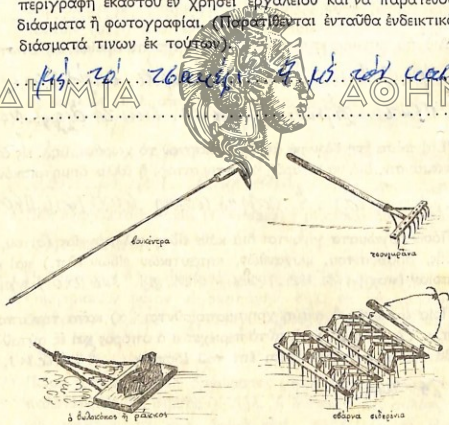 περιγραφή ἑκάστου ἐν χρήσει ἐργαλείου καὶ νὰ παρατεθοῦ
διάσματα ἢ φωτογραφίαι. (Παρατίθενται ἐνταῦθα ἐνδεικτικ
διάσματά τινων ἐκ τούτων).
μὲ τό τσαπί ἢ μέ τόν
ΔΗΜΙΑ ΑΘΗΝ
βουκέντρα
τσουγκράνα
ὁ βωλοκόπος ἢ ράκκος
σβάρνα σιδερένια